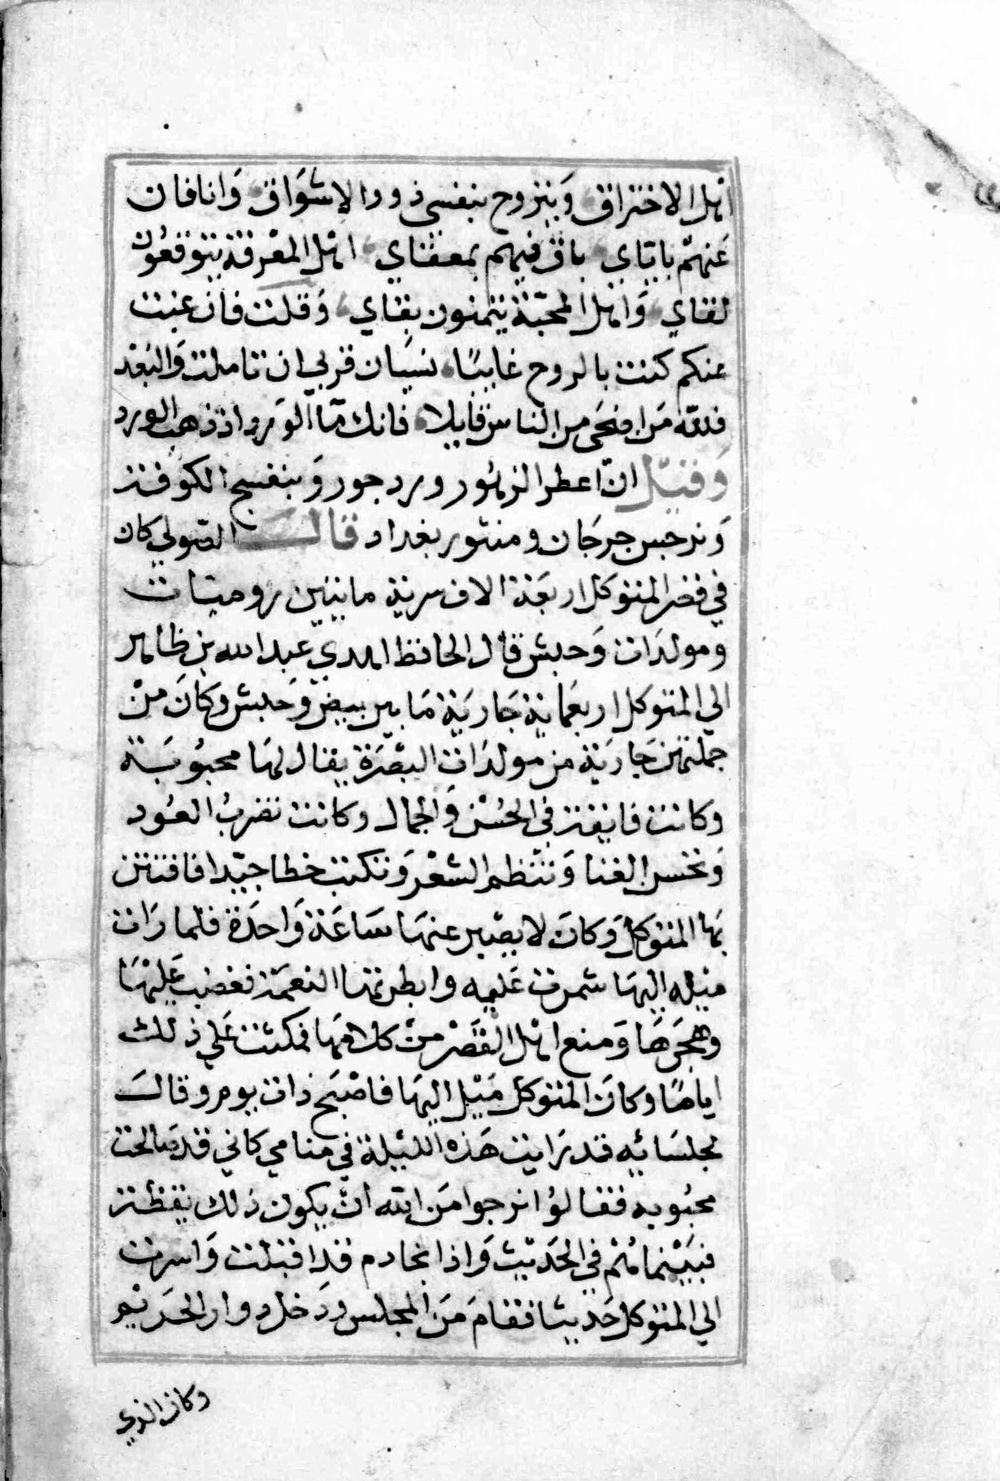 اهل الاختراق وَيتروح بنفسي ذووا الاشوَاق وَانا فان
عَنهم باتاي باق فيهم بمعناي اهل المعْرفة يتوقعُون
لقاي وَاهل المحبّة يتمنون بقاي وَقلت فان غبت
عنكم كنت بالروح غايبًا نسيان قربي ان تاملت وَالبُعْد
فلله مَن اضحَى من الناس قايلا فانك ما الورد اذ ذهب الورد
وَقيل ان اعطر الزهُور ورد جور وَبنفسج الكوفة
وَنرجس جرجَان ومنثور بغداد قالــ الصولي كان
في قصر المتوكل اربعَة الاف سرية مابين روميات
ومولدَات وَحبش قال الحافظ اهدي عبد الله بن ظاهر
الي المتوكل اربعماية جَاريَة مَا بين بيض وَحبش وكانَ منْ
جملتهن جَاريَة من مولدَات البَصْرَة يقال لهَا محبُوبَة
وكانت فايقة في الحُسْن وَالجمال وكانت تضربُ العُود
وَتحسن الغنا وَتنظم الشعْر وَتكتب خطا جيّدا فافتتن
بهَا المتوكل وَكانَ لا يصْبر عنهَا سَاعَة وَاحدَة فلما رَات
مَيله اليهَا شمرت عَليه وابطرتها النعمَة فغضب عَليْهَا
وهجَرهَا وَمنع اهْل القَصْر منْ كلامهَا فمكثت عَلي ذلك
ايامًا وكانَ المتوكل مَيْل اليهَا فاصْبَح ذات يوم وقالَ
لجلسَائِه قد رَايت هَذه الليْلة في منامي كاني قد صَالحت
محبُوبه فقالوُا نرجوا مَن الله انْ يكون ذلك يقظة
فبَيْنما هُمْ في الحَديْث وَاذا بخادم قد اقبلت وَاسرت
الي المتوكل حَديثا فقامَ مَن المجلس ودَخل دوار الحَريْم
وكان الذي